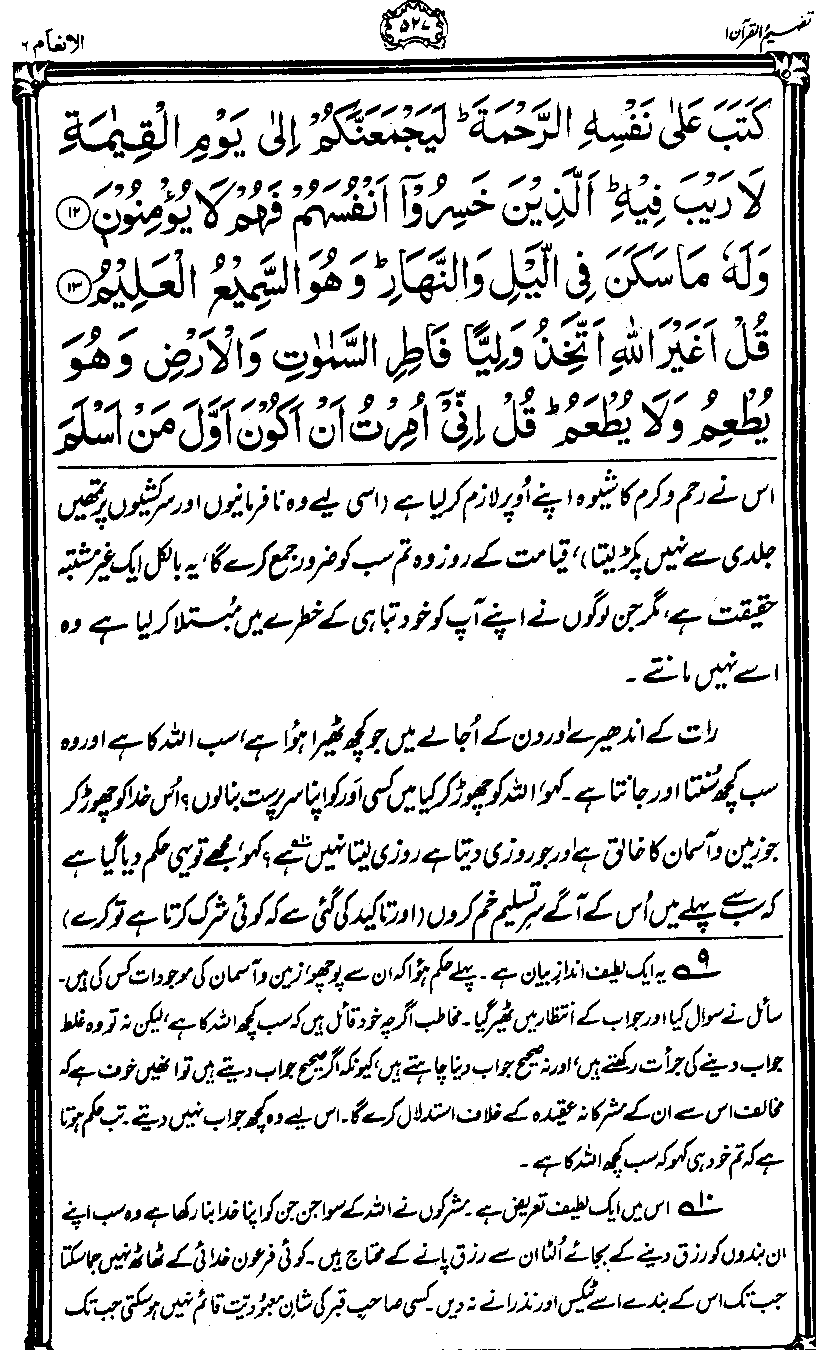 تفہیم القرآن ۱
۵۲۷
الانعام ۶
كَتَبَ عَلٰى نَفْسِهِ الرَّحْمَةَ ؕ لَيَجْمَعَنَّكُمْ اِلٰى يَوْمِ الْقِيٰمَةِ
لَا رَيْبَ فِيْهِ ؕ اَلَّذِيْنَ خَسِرُوْۤا اَنْفُسَهُمْ فَهُمْ لَا يُؤْمِنُوْنَ ﴿۱۲﴾
وَلَهٗ مَا سَكَنَ فِى الَّيْلِ وَالنَّهَارِ ؕ وَهُوَ السَّمِيْعُ الْعَلِيْمُ ﴿۱۳﴾
قُلْ اَغَيْرَ اللّٰهِ اَتَّخِذُ وَلِيًّا فَاطِرِ السَّمٰوٰتِ وَالْاَرْضِ وَهُوَ
يُطْعِمُ وَلَا يُطْعَمُ ؕ قُلْ اِنِّىْۤ اُمِرْتُ اَنْ اَكُوْنَ اَوَّلَ مَنْ اَسْلَمَ
اس نے رحم و کرم کا شیوہ اپنے اُوپر لازم کر لیا ہے (اسی لیے وہ نافرمانیوں اور سرکشیوں پر تمھیں
جلدی سے نہیں پکڑ لیتا)، قیامت کے روز وہ تم سب کو ضرور جمع کرے گا، یہ بالکل ایک غیر مشتبہ
حقیقت ہے، مگر جن لوگوں نے اپنے آپ کو خود تباہی کے خطرے میں مُبتلا کر لیا ہے وہ
اسے نہیں مانتے ۔
رات کے اندھیرے اور دن کے اُجالے میں جو کچھ ٹھیرا ہوُا ہے، سب اللہ کا ہے اور وہ
سب کچھ سُنتا اور جانتا ہے ۔ کہو، اللہ کو چھوڑ کر کیا میں کسی اَور کو اپنا سرپرست بنا لوں؟ اُس خدا کو چھوڑ کر
جو زمین و آسمان کا خالق ہے اور جو روزی دیتا ہے روزی لیتا نہیں ۱۰ ہے؟ کہو، مجھے تو یہی حکم دیا گیا ہے
کہ سب سے پہلے میں اُس کے آگے سرِ تسلیم خم کروں (اور تاکید کی گئی ہے کہ کوئی شرک کرتا ہے تو کرے)
۹ یہ ایک لطیف اندازِ بیان ہے ۔ پہلے حکم ہوُا کہ ان سے پوچھو، زمین و آسمان کی موجودات کس کی ہیں۔
سائل نے سوال کیا اور جواب کے انتظار میں ٹھیر گیا ۔ مخاطب اگرچہ خود قائل ہیں کہ سب کچھ اللہ کا ہے، لیکن نہ تو وہ غلط
جواب دینے کی جرأت رکھتے ہیں، اور نہ صحیح جواب دینا چاہتے ہیں، کیونکہ اگر صحیح جواب دیتے ہیں تو انھیں خوف ہے کہ
مخالف اس سے ان کے مشرکانہ عقیدہ کے خلاف استدلال کرے گا۔ اس لیے وہ کچھ جواب نہیں دیتے ۔ تب حکم ہوتا
ہے کہ تم خود ہی کہو کہ سب کچھ اللہ کا ہے ۔
۱۰ اس میں ایک لطیف تعریض ہے ۔ مشرکوں نے اللہ کے سوا جن جن کو اپنا خدا بنا رکھا ہے وہ سب اپنے
ان بندوں کو رزق دینے کے بجائے اُلٹا ان سے رزق پانے کے محتاج ہیں ۔ کوئی فرعون خدائی کے ٹھاٹھ نہیں جما سکتا
جب تک اس کے بندے اسے ٹیکس اور نذرانے نہ دیں ۔ کسی صاحبِ قبر کی شانِ معبودیّت قائم نہیں ہو سکتی جب تک